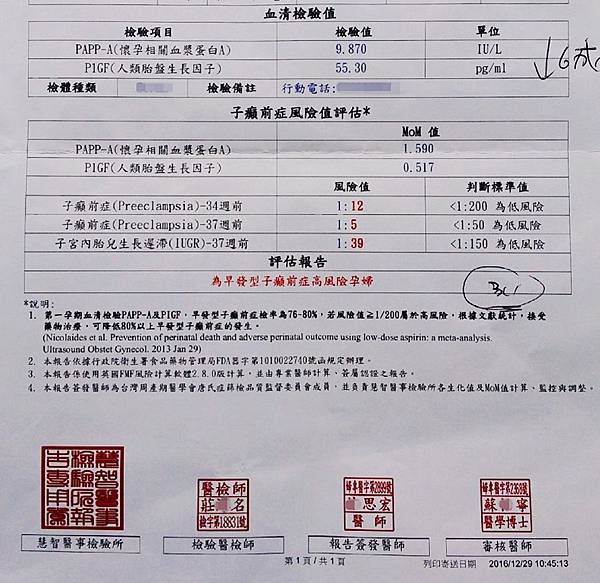 血清檢驗值
檢驗項目 檢驗值 單位
PAPP-A(懷孕相關血漿蛋白A) 9.870 IU/L
PlGF(人類胎盤生長因子) 55.30 pg/ml
檢體種類 檢驗備註 行動電話:
子癲前症風險值評估*
MoM 值
PAPP-A(懷孕相關血漿蛋白A) 1.590
PlGF(人類胎盤生長因子) 0.517
風險值 判斷標準值
子癲前症(Preeclampsia)-34週前 1:12 <1:200 為低風險
子癲前症(Preeclampsia)-37週前 1:5 <1:50 為低風險
子宮內胎兒生長遲滯(IUGR)-37週前 1:39 <1:150 為低風險
評估報告
為早發型子癲前症高風險孕婦
*說明:
1. 第一孕期血清檢驗PAPP-A及PlGF，早發型子癲前症檢出率為76-80%，若風險值≧1/200屬於高風險，根據文獻統計，接受
藥物治療，可降低80%以上早發型子癲前症的發生。
(Nicolaides et al. Prevention of perinatal death and adverse perinatal outcome using low-dose aspirin: a meta-analysis.
Ultrasound Obstet Gynecol. 2013 Jan 29)
2. 本報告依據行政院衛生署食品藥物管理局FDA器字第1010022740號函規定辦理。
3. 本報告係使用英國FMF風險計算軟體2.8.0版計算，並由專業醫師計算、簽屬認證之報告。
4. 本報告簽發醫師為台灣周產期醫學會唐氏症篩檢品質監督委員會成員，並負責慧智醫事檢驗所各生化值及MoM值計算、監控與調整。
慧智醫事
檢驗所報
告專用章
醫檢師
莊 名
檢字第18831號
婦專醫字第2899號
思宏
醫師
婦專醫字第2368號
蘇 寧
醫學博士
慧智醫事檢驗所 檢驗醫檢師 報告簽發醫師 審核醫師
第 1 頁 / 共 1 頁
列印寄送日期 2016/12/29 10:45:13